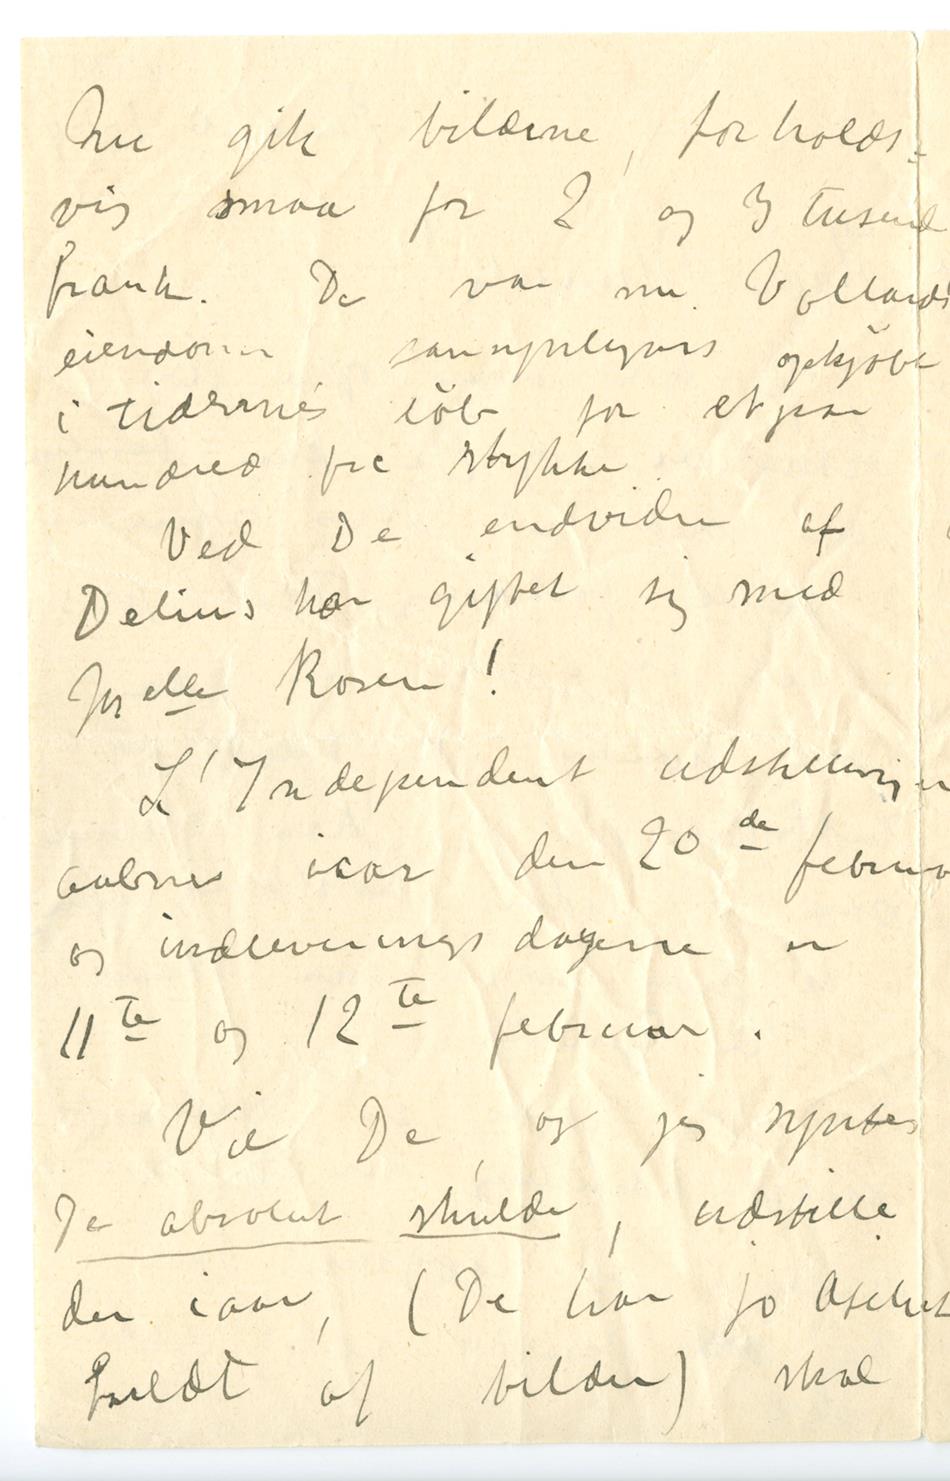 Nu gik bilderne, forholds-
vis smaa for 2 og 3 tusend
frank. De var nu Vollards
eiendom sansynligvis opkjøbt
i tidernes løb for et par
hundred frc stykke
Ved De endvidre at
Delius har giftet sig med
Mselle Rosen!
L'Independent udstillingen
aabnes iaar den 20de februar
og indleveringsdagene er
11te og 12te februar.
Vil De, og jeg syntes
De absolut skulde, udstille
der iaar, (De har jo
fuldt af bilder) skal